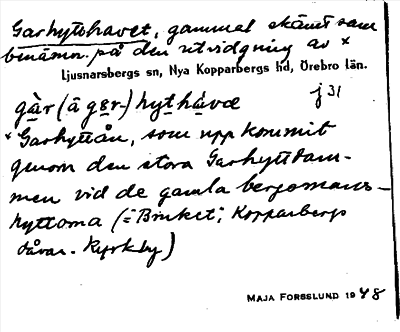 Garhyttehavet, gammal skämtsam
benämn. på den utvidgning av ×
Ljusnarsbergs sn, Nya Kopparbergs hd, Örebro län.
gàr (å ger-) hythávæ j 31
× Garhyttån, som uppkommit
genom den stora Garhyttdam-
men vid de gamla bergsmans-
hyttorna (= Bruket; Kopparbergs
Kyrkby)
MAJA FORSSLUND 1948